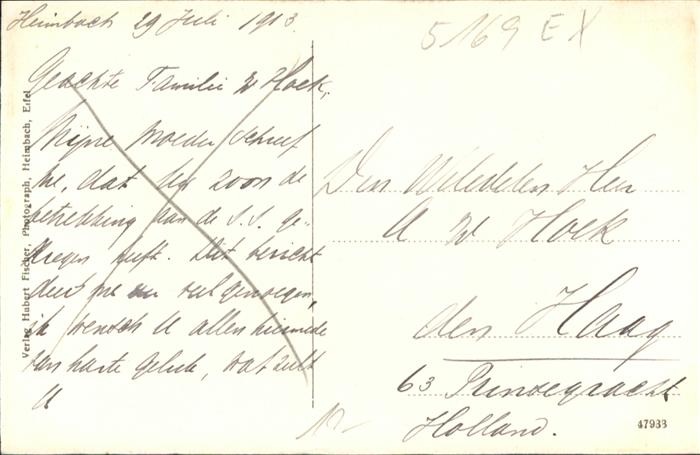 Heimbach 29 Juli 1913.
5169 EX
Geachte Familie v Hoek,
Mijne Moeder schreef
me, dat Uw zoon de
betrekking aan de S.S. ge-
kregen heeft. Dit bericht
deed me veel genoegen,
ik wensch U allen hiermede
van harte geluk, wat zult
U
Den WelEdelen Heer
A v Hoek
den Haag
63 Prinsegracht
Holland.
Verlag Hubert Fischer, Photograph, Heimbach, Eifel
47933